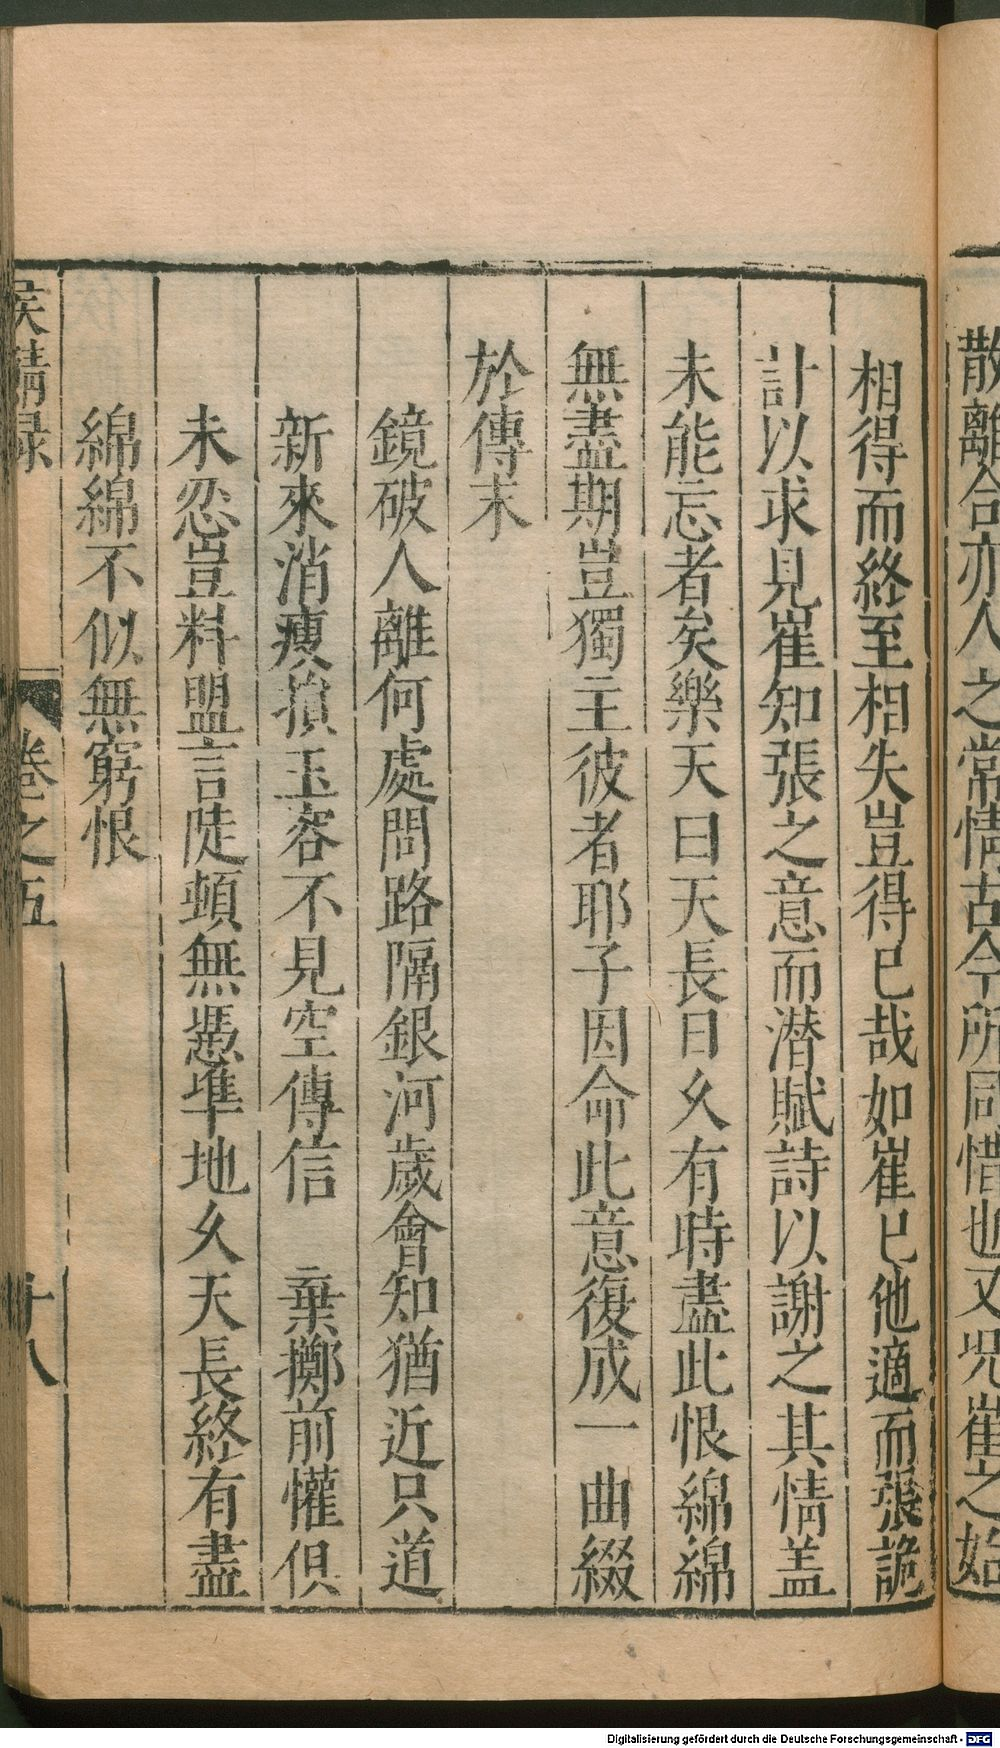 散離合亦人之常情古今所同惜也又况崔之始
相得而終至相失豈得已哉如崔已他適而張詭
計以求見崔知張之意而潜賦詩以謝之其情盖
未能忘者矣樂天曰天長日久有時盡此恨綿綿
無盡期豈獨主彼者耶子因命此意復成一曲綴
於傳末
鏡破人離何處問路隔銀河歲會知猶近只道
新來消瘦損玉容不見空傳信　棄擲前懽俱
未忍豈料盟言陡頓無憑凖地久天長終有盡
綿綿不似無窮恨
侯鯖録　卷之五　十八
Digitalisierung gefördert durch die Deutsche Forschungsgemeinschaft - DFG